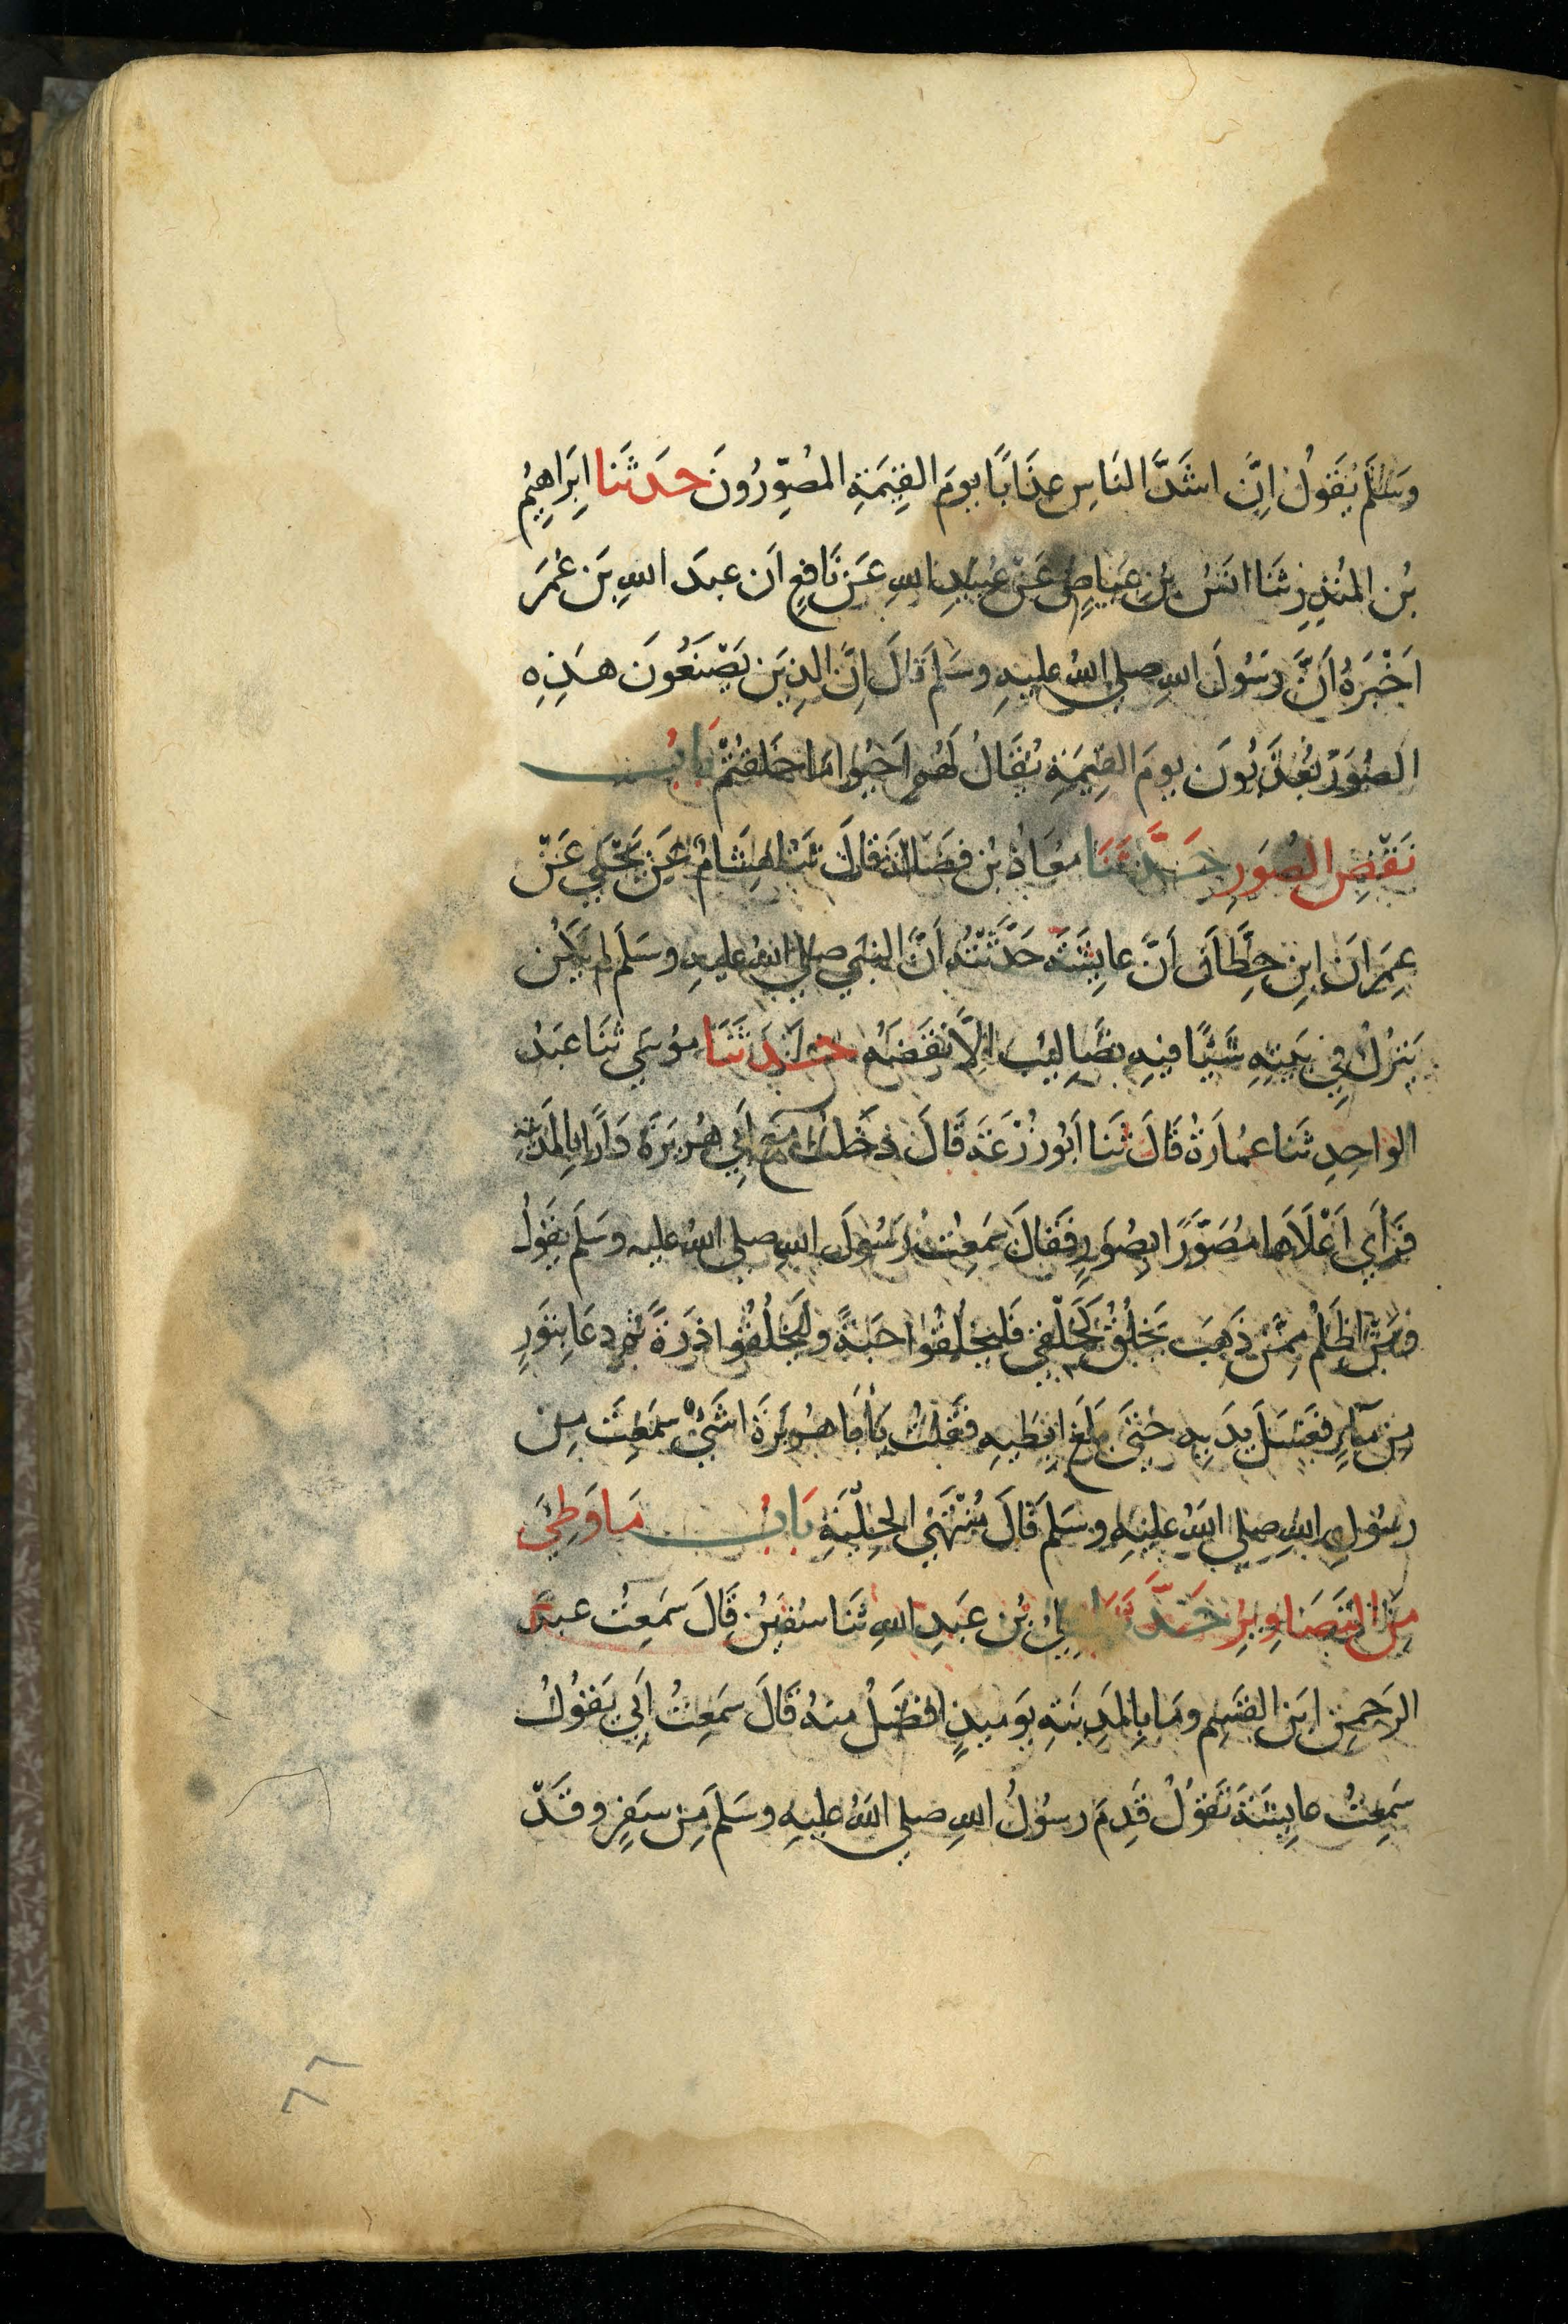 وَسَلَّمَ يَقُولُ اِنَّ اشَدَّ النَاسِ عذَابًا يومَ القِيٰمَةِ المُصَوِّرُونَ حدَثَنا اِبرَاهِيمُ
بْن المُنذِرِ ثَنَا انَسُ بْنِ عيَاضٍ عَنْ عُبَيدِ اللهِ عَن نَافِعٍ اَن عبدَ اللهِ بنَ عُمَرَ
اَخْبَرَهُ اَنَّ رَسُولَ اللهِ صلى اللهُ عليهِ وسَلم قَالَ اِنَّ الذِينَ يَصْنَعُونَ هذِهِ
الصُوَرَ يُعَذَّبُونَ يومَ القِيٰمَةِ يُقَالُ لَهُم اَحيُوا مَا خلَقتُمْ بَابُ
نَقْضِ الصُوَرِ حَدَّثَنَا معَاذُ بْن فضَالَةَ قَالَ ثنَا هِشَامٌ عَن يَحْيَى عَنْ
عِمرَانَ ابنِ حِطَّانَ اَنَّ عايِشَةَ حَدَّثَتْهُ اَنَّ النبيَ صلى اللهُ عليهِ وسَلَم لم يَكُن
يَترُكُ فِي بَيتِهِ شَيْئًا فيهِ تصَالِيبُ الَّا نقَضَهُ حدَثَنَا موُسَى ثنَا عَبدُ
الواحِدِ ثنَا عمُارَةُ قَالَ ثنَا اَبُو زُرْعَةَ قَالَ دخَلتُ معَ اَبِي هُرَيرَةَ دَارًا بِالمَدِينَةِ
فَرَأَى اَعْلَاهَا مُصَوَّرًا بِصُوَرٍ فَقَالَ سَمعِتُ رَسُولَ اللهِ صلى اللهُ عليه وسَلَم يقَولُ
ومَنْ اظَلَمُ مِمَنْ ذَهَبَ يَخلُقُ كَخَلْقِي فَليَخلُقُوا حَبةً وليَخلُقُوا ذرَةً ثم دعَا بتَورٍ
مِن مآءٍ فغَسَلَ يدَيهِ حَتَى بلَغَ ابِطَيهِ فقُلتُ يَأَبَا هُرَيرَةَ اشَيْءٌ سمَعِتَهُ مِن
رسُولِ اللهِ صلى اللهُ عليهِ وسَلم قَالَ مُنْتَهَى الحِلْيَةِ بَابُ مَا وَطِئَ
مِنَ التَصَاوِيرِ حَدَّثَنَا علِيُ بْن عَبدِ اللهِ ثنَا سفيٰنُ قَالَ سَمعِتُ عبدَ
الرَحمنِ ابنَ القٰسِم ومَا بِالمدَيِنَةِ يَومَيِذٍ افضَلُ منهُ قَالَ سَمعِتُ اَبِي يَقُولُ
سَمِعتُ عايِشَةَ تَقوُلُ قَدِمَ رسُولُ اللهِ صلى اللهُ عليهِ وسَلم مِن سَفرٍ وقَدْ
٦٦